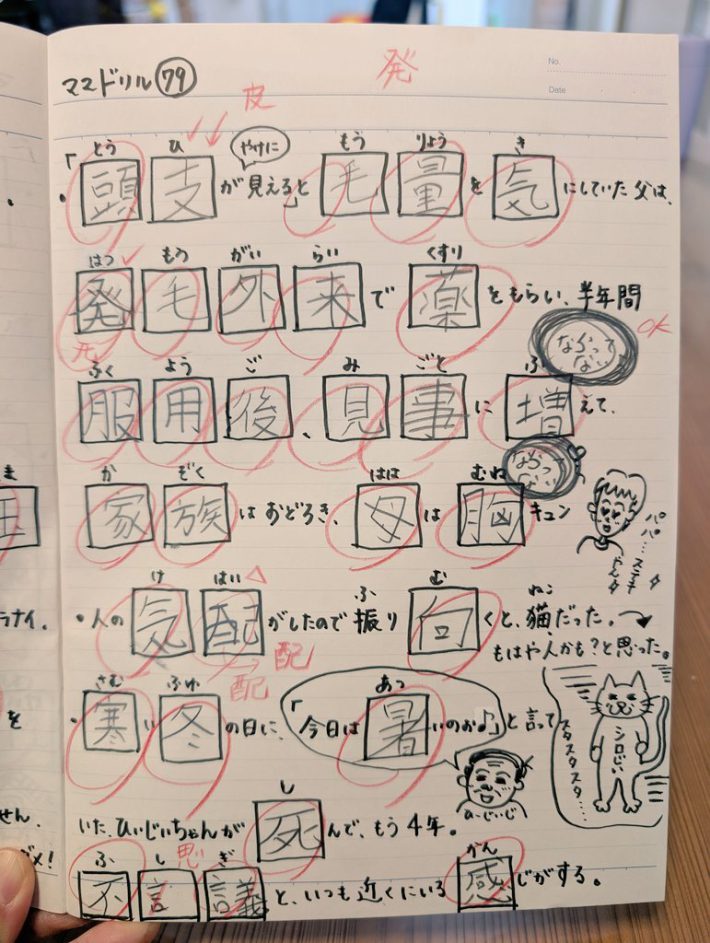 ママドリル 79
発
No.
Date
皮
とう ひ やけに もう りょう き
・「頭支が見える」と毛量を気にしていた父は、
はつ もう がい らい くすり
発毛外来で薬をもらい、半年間
OK
ならってない
ふく よう ご み ごと ふ
服用後、見事に増えて、
ならってない
か ぞく はは むね
家族はおどろき、母は胸キュン
パパ…ステキやん
け はい ふ む ねこ
・人の気配がしたので振り向くと、猫だった。
配 配
もはや人かも?と思った。
さむ ふゆ あつ
・寒い冬の日に、「今日は暑いのぉ♪」と言って
シロじい
スタスタスタ…
ひぃじいじ
し
いた、ひぃじいちゃんが死んで、もう4年。
思
ふ し ぎ がん
不言議と、いつも近くにいる感じがする。
ま
ラナイ。
を
せん.